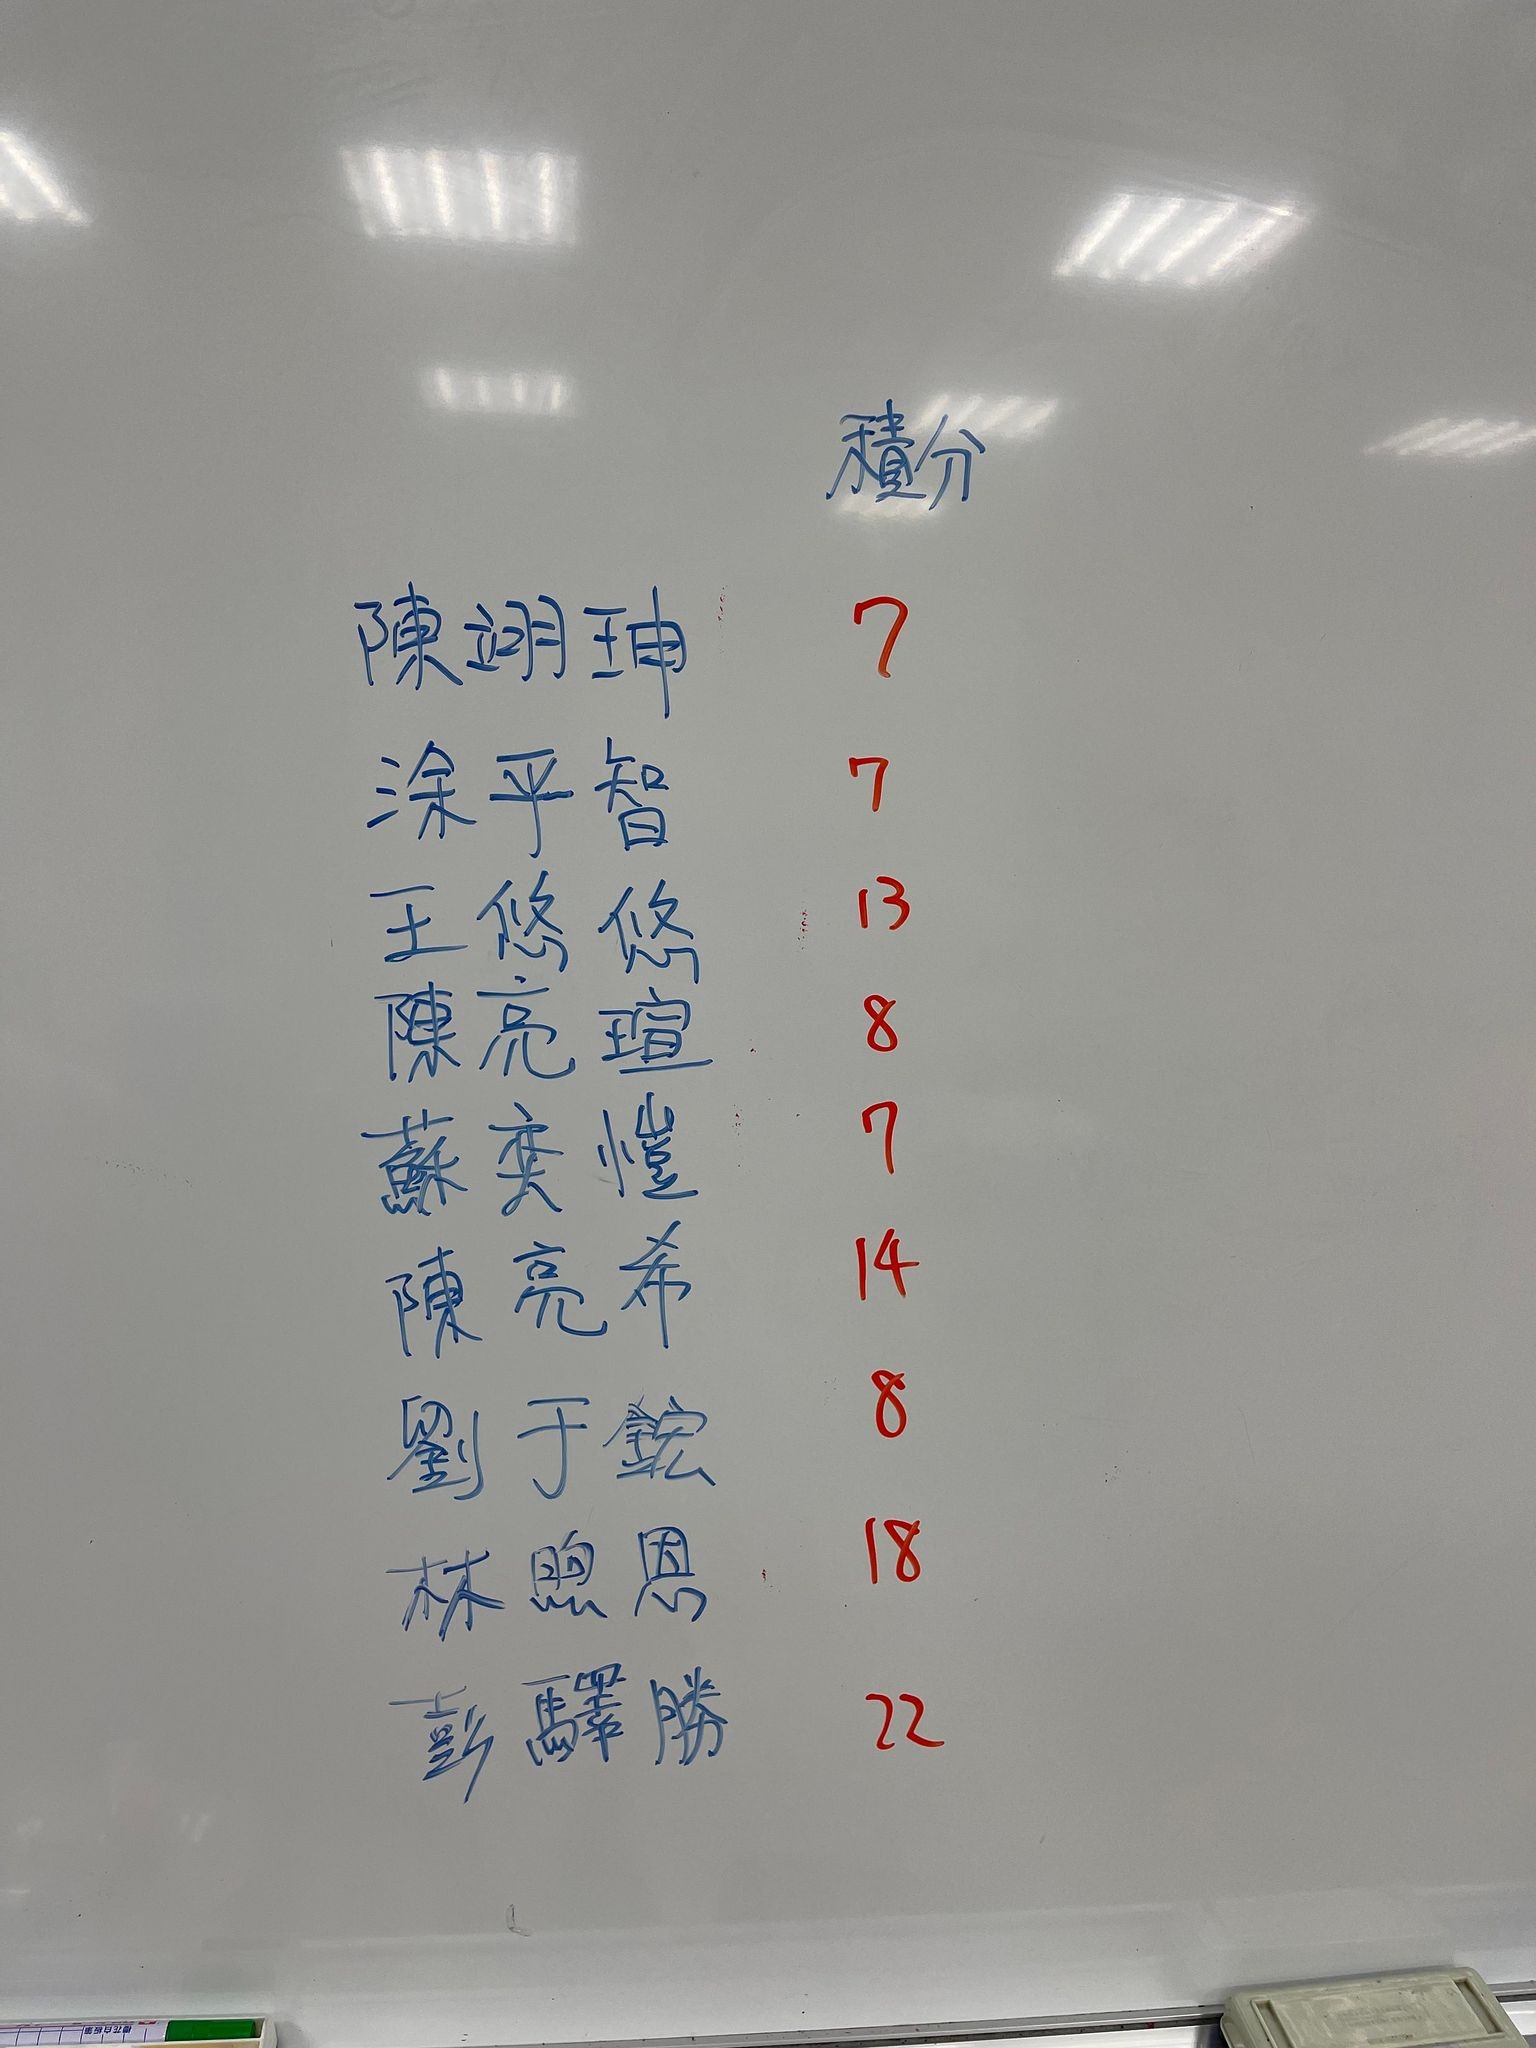 積分
陳翊珅 7
涂平智 7
王悠悠 13
陳亮瑄 8
蘇奕愷 7
陳亮希 14
劉于鋐 8
林煦恩 18
彭驛勝 22